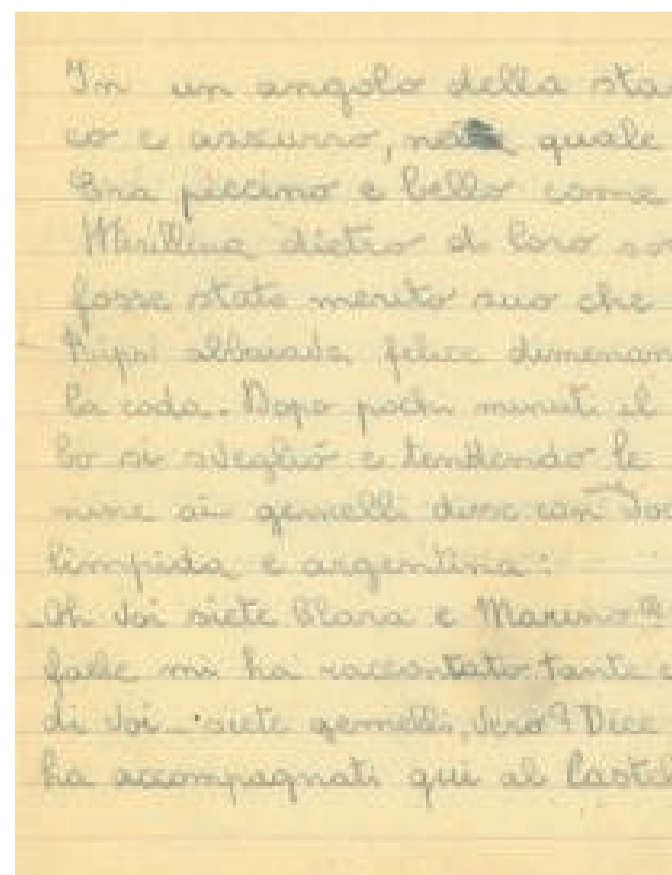 In un angolo della sta
co e azzurro, nella quale
Era piccino e bello come
Mirillina dietro di loro
fosse stato merito suo che
abbaiava felice dimenan
la coda. Dopo pochi minuti il
bo si svegliò e tendendo le
nine ai gemelli disse con voc
limpida e argentina:
Oh voi siete Clara e Marino?
mi ha raccontato tante c
di voi - siete gemelli, vero? Dice
ha accompagnati qui al Castel